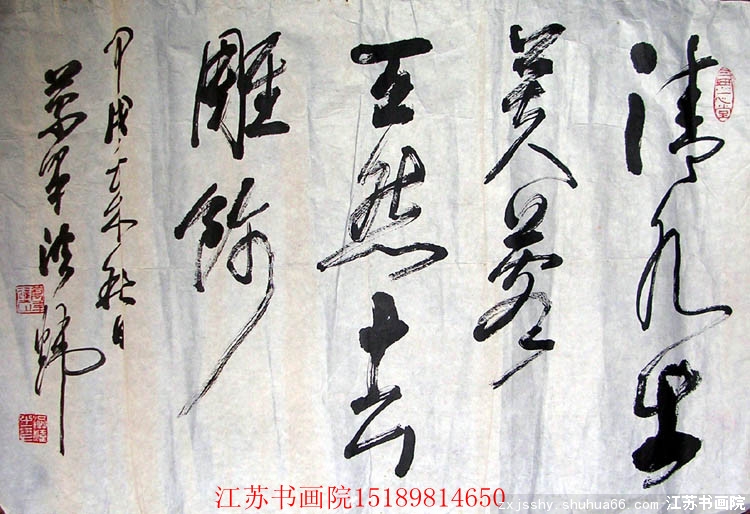 清水出
芙蓉
天然去
雕饰
甲戌 秋日
江苏书画院15189814650
zxjsshy.shuhua66.com 江苏书画院